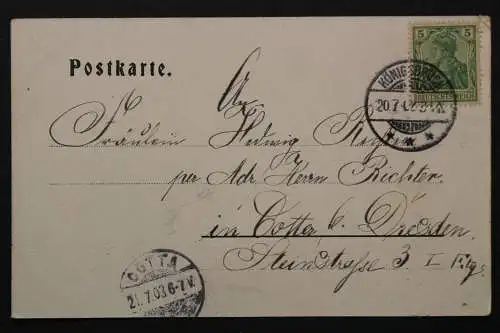 5 5
DEUTSCHES REICH
KÖNIGSBRÜCK
20.7.
Postkarte.
An
Fräulein Hedwig
per Adr Herrn Richter.
in Cotta b. Dresden.
Steinstrasse 3 I Etg.
COTTA
21.7.03 6-7V.